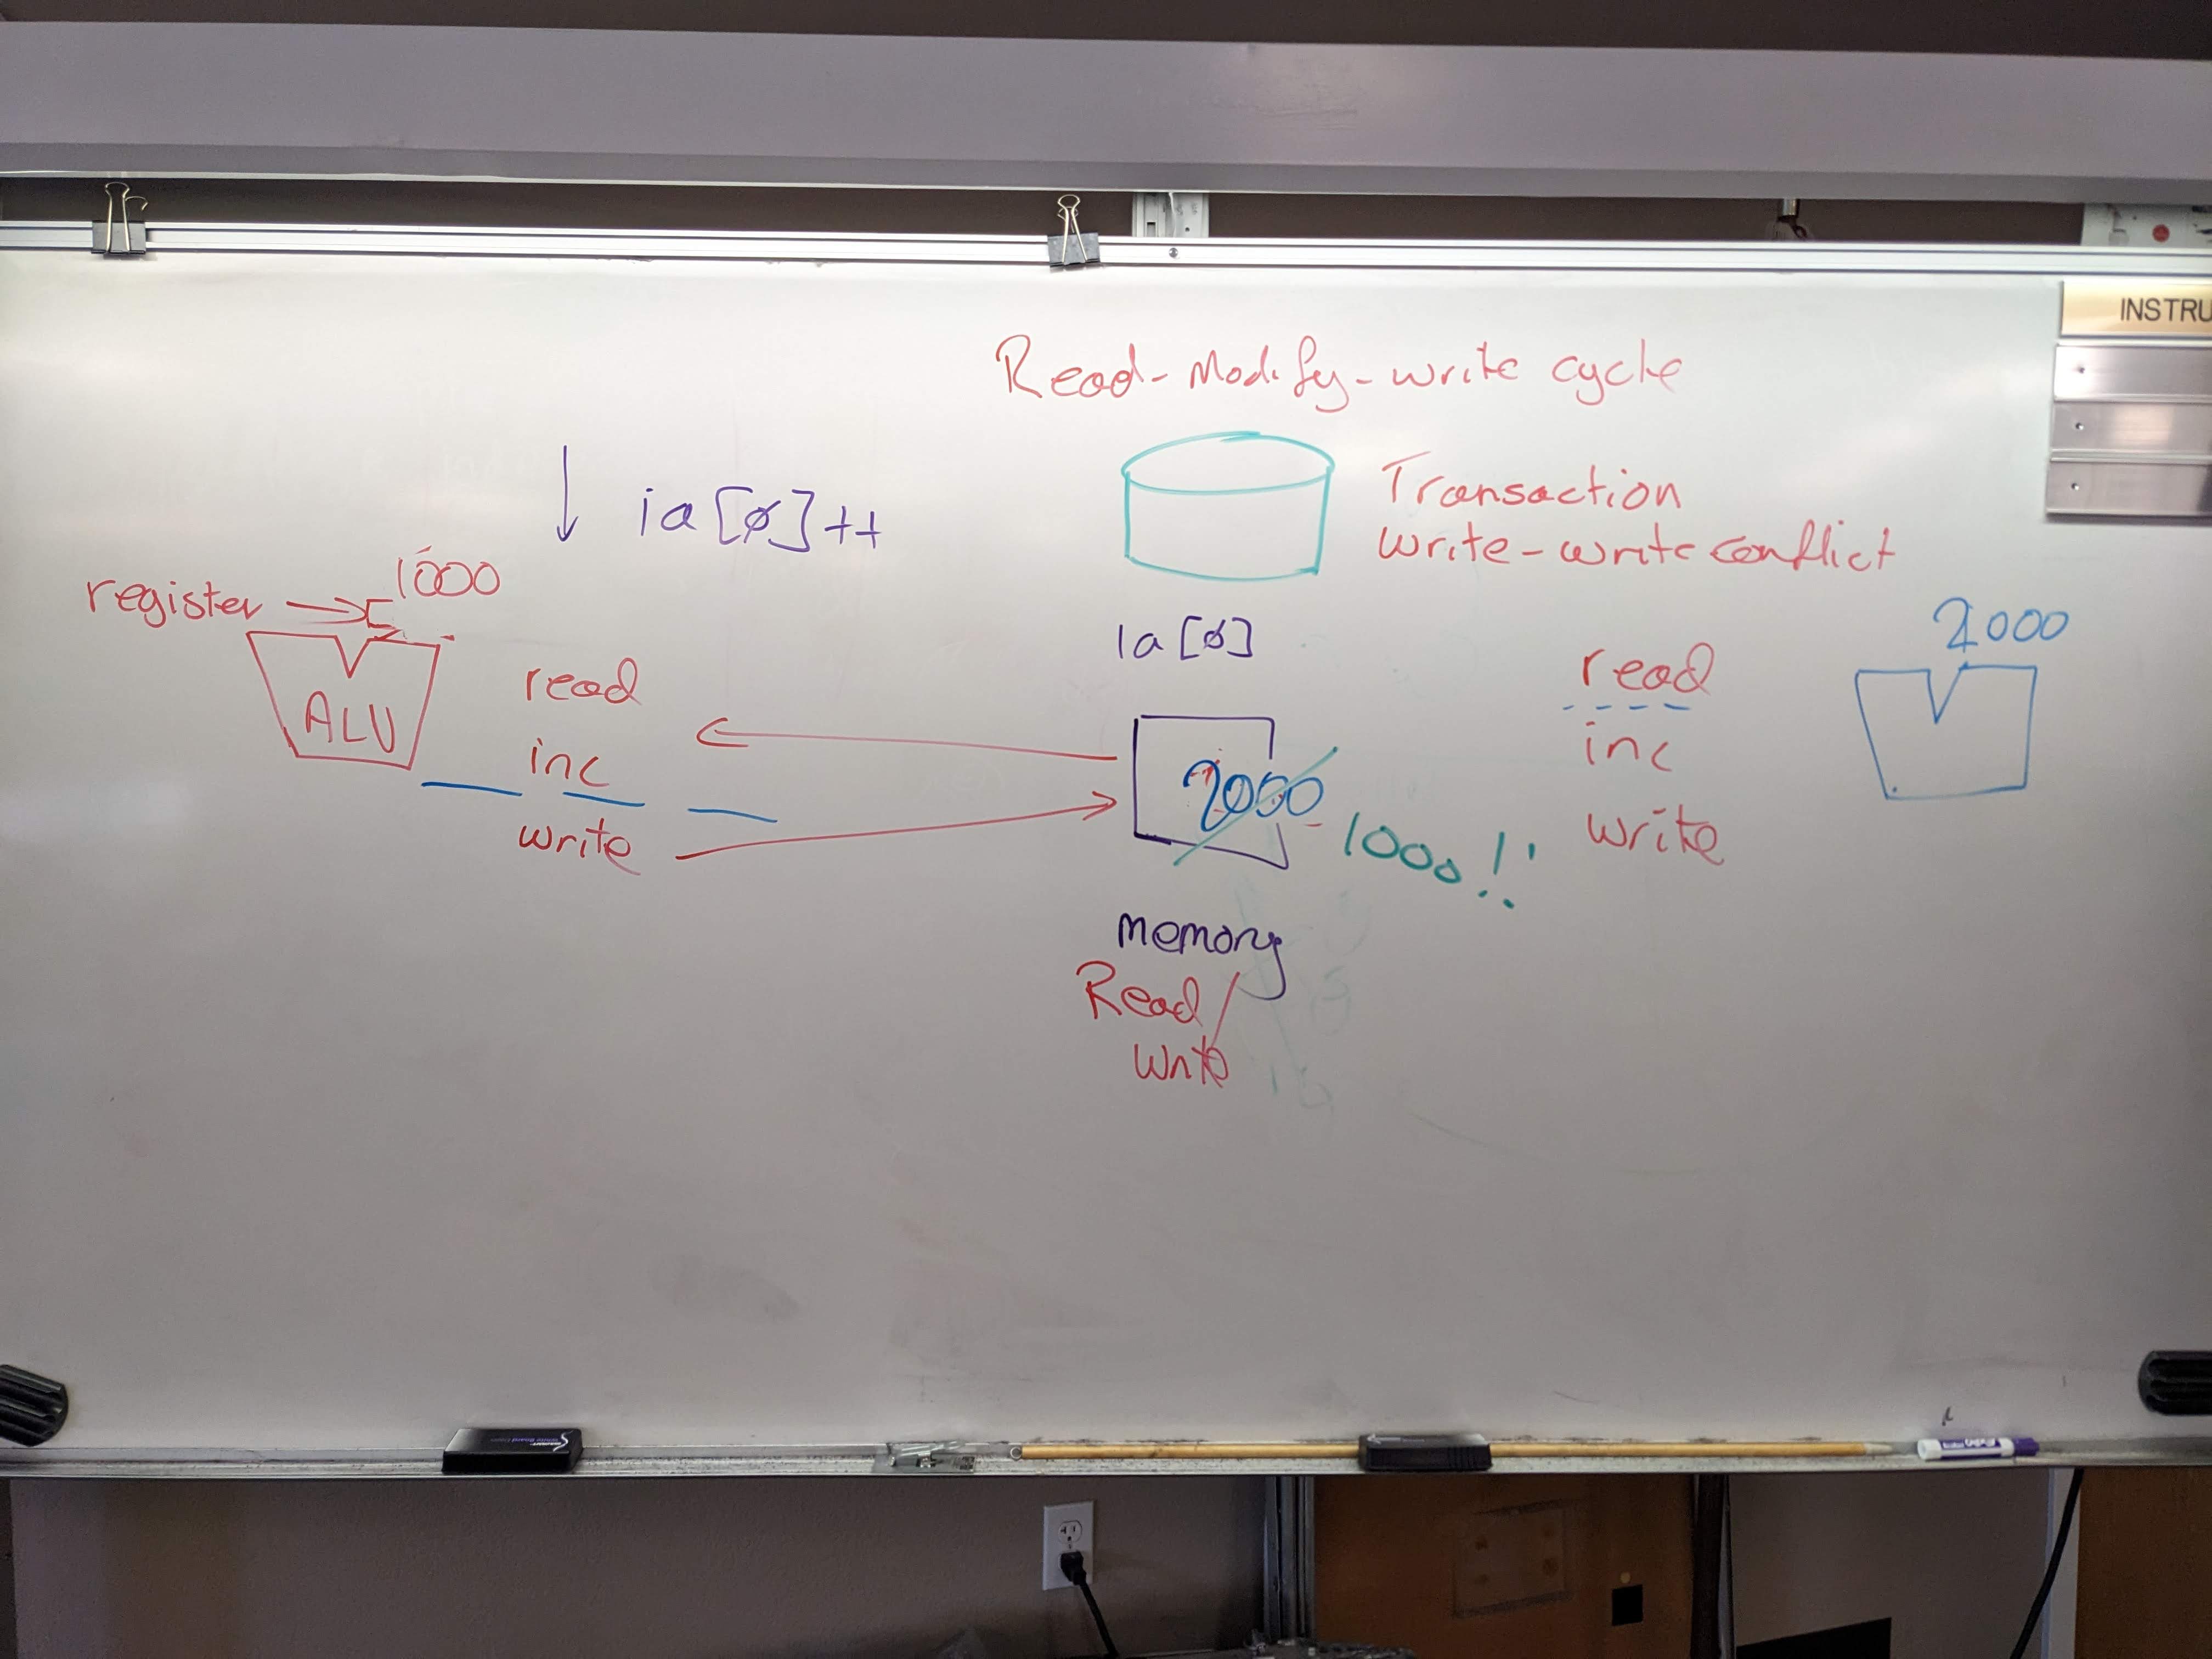 INSTRU
Read-Modify-write cycle
ia[0]++
Transaction
write-write conflict
register
1000
ALU
read
inc
write
ia[0]
2000
1000!!
memory
Read/
Write
read
inc
write
2000